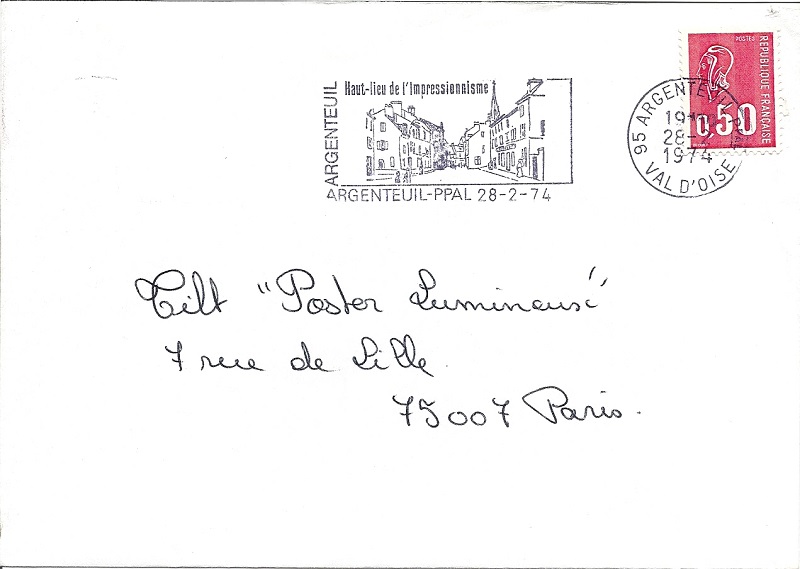 Haut-lieu de l'Impressionnisme
ARGENTEUIL
ARGENTEUIL-PPAL 28-2-74
95 ARGENTEUIL PPAL
19H
28-2
1974
VAL D'OISE
POSTES
REPUBLIQUE FRANÇAISE
0,50
Tilt "Poster Lumineux"
7 rue de Lille
75007 Paris.